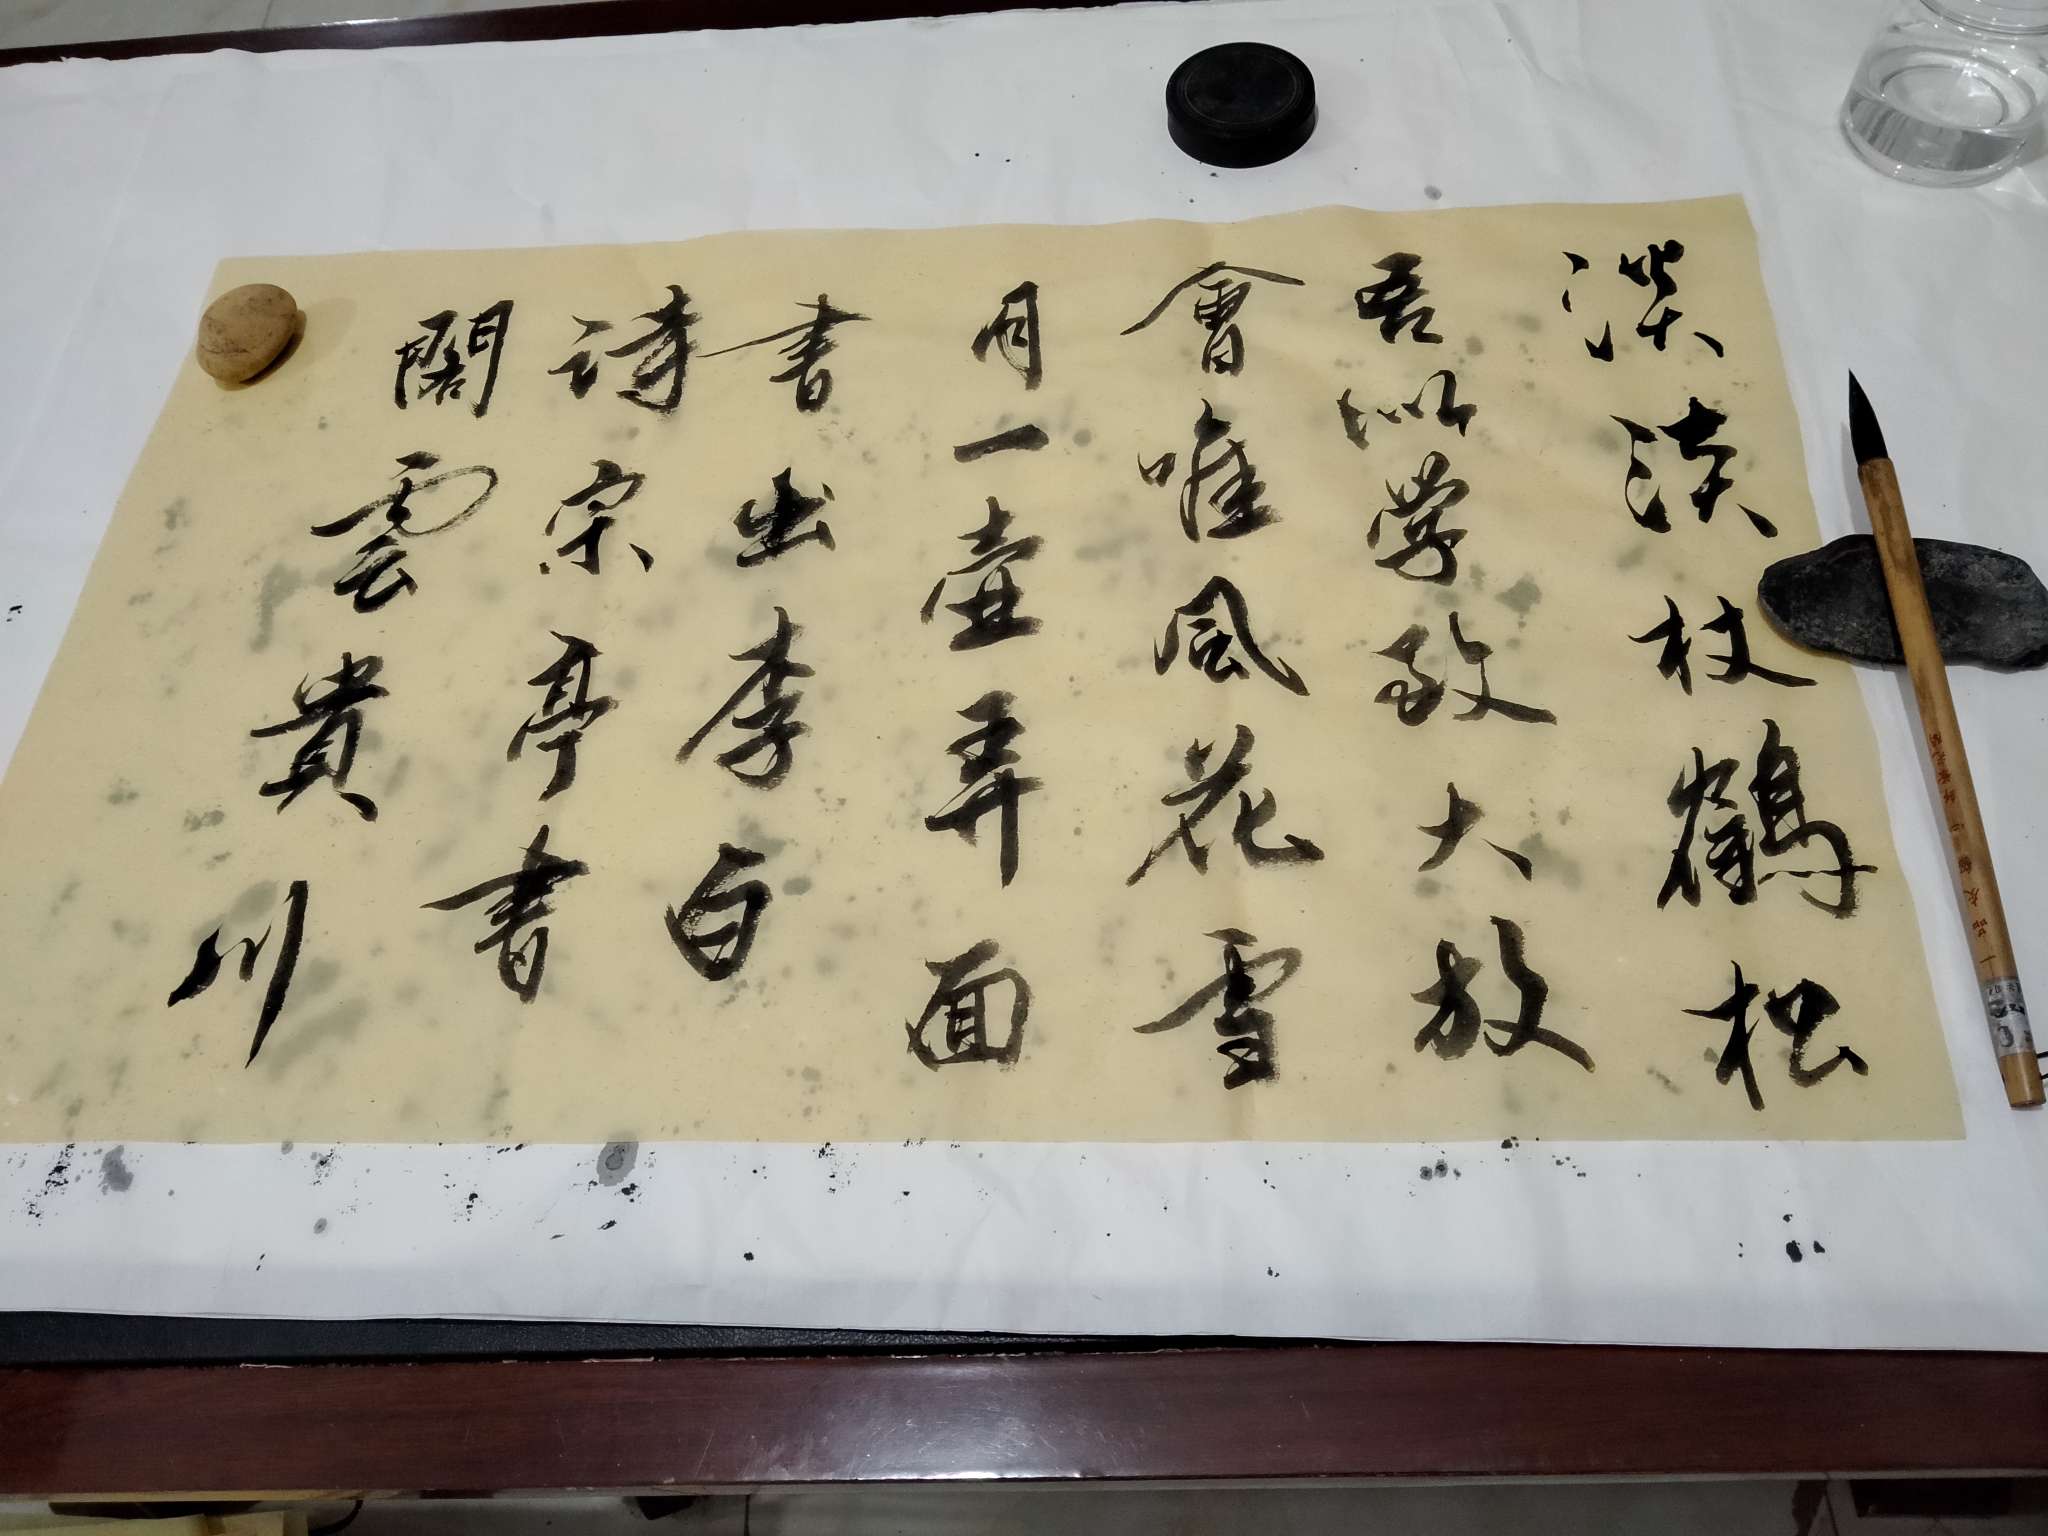 淡淡杖鶴松
吾以学致大放
會唯風花雪
月一壺弄面
書出李白
詩宗亭書
閣雲貴川